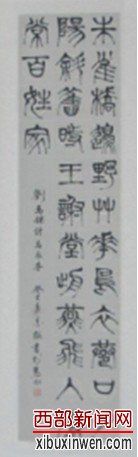 朱雀橋邊野艸華烏衣巷口
陽斜舊時王謝堂前燕飛入
常百姓家
劉禹錫詩烏衣巷
西部新闻网
xibuxinwen.com